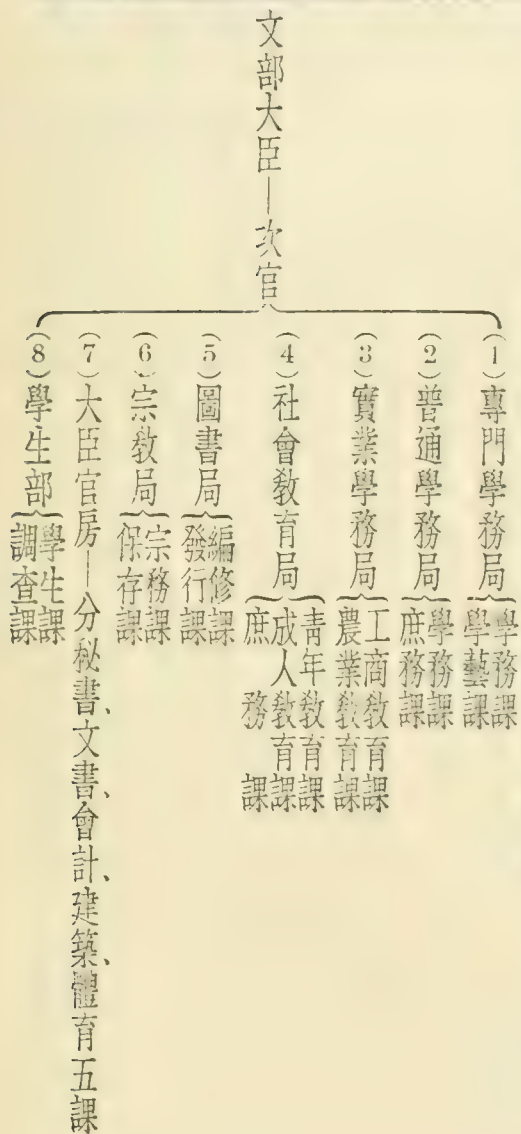 文部大臣—次官
(1)專門學務局
學務課
學藝課
(2)普通學務局
學務課
庶務課
(3)實業學務局
工商教育課
農業教育課
(4)社會教育局
青年教育課
成人教育課
庶務課
(5)圖書局
編修課
發行課
(6)宗教局
宗務課
保存課
(7)大臣官房—分秘書、文書、會計、建築、體育五課
(8)學生部
學生課
調查課